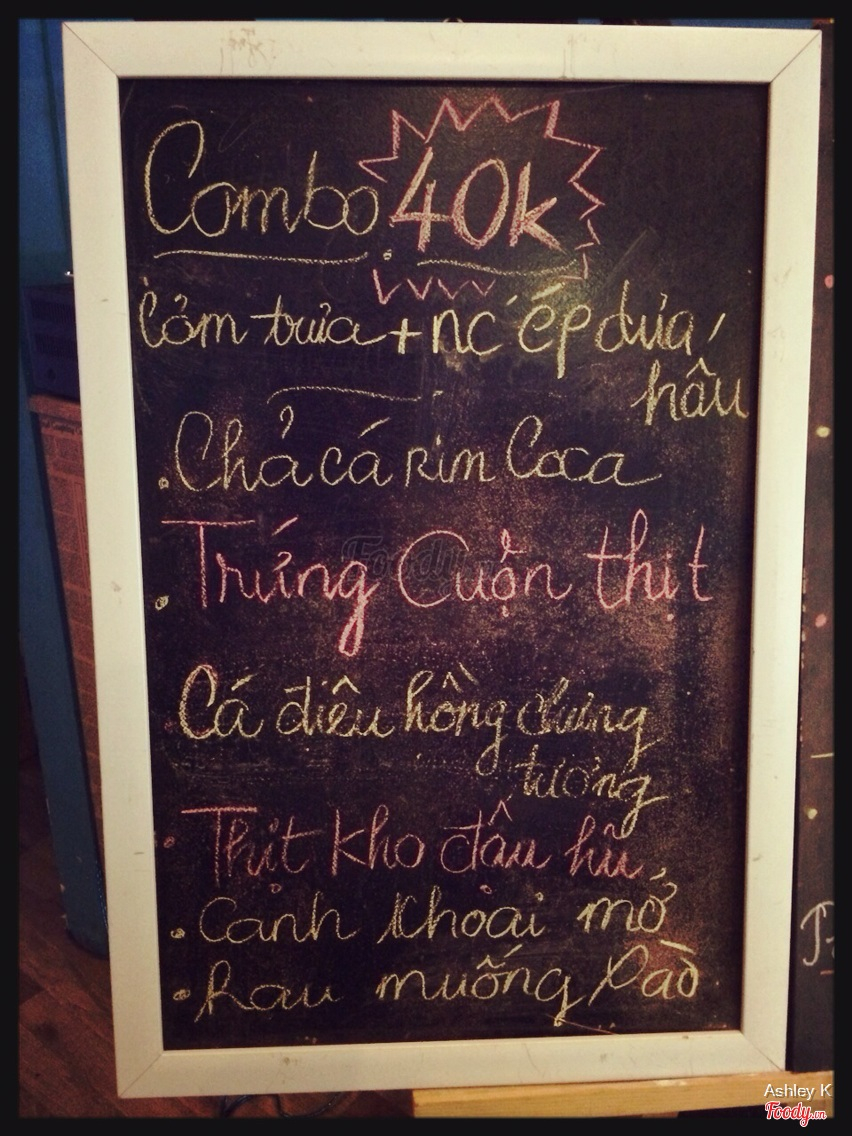 Combo 40k
Cơm trưa + nc ép dưa
hấu
. Chả cá rim Coca
. Trứng Cuộn thịt
Cá điêu hồng chưng
tương
. Thịt kho đậu hũ
. Canh khoai mỡ
. Rau muống xào
Foody.vn
Ashley K
Foody.vn